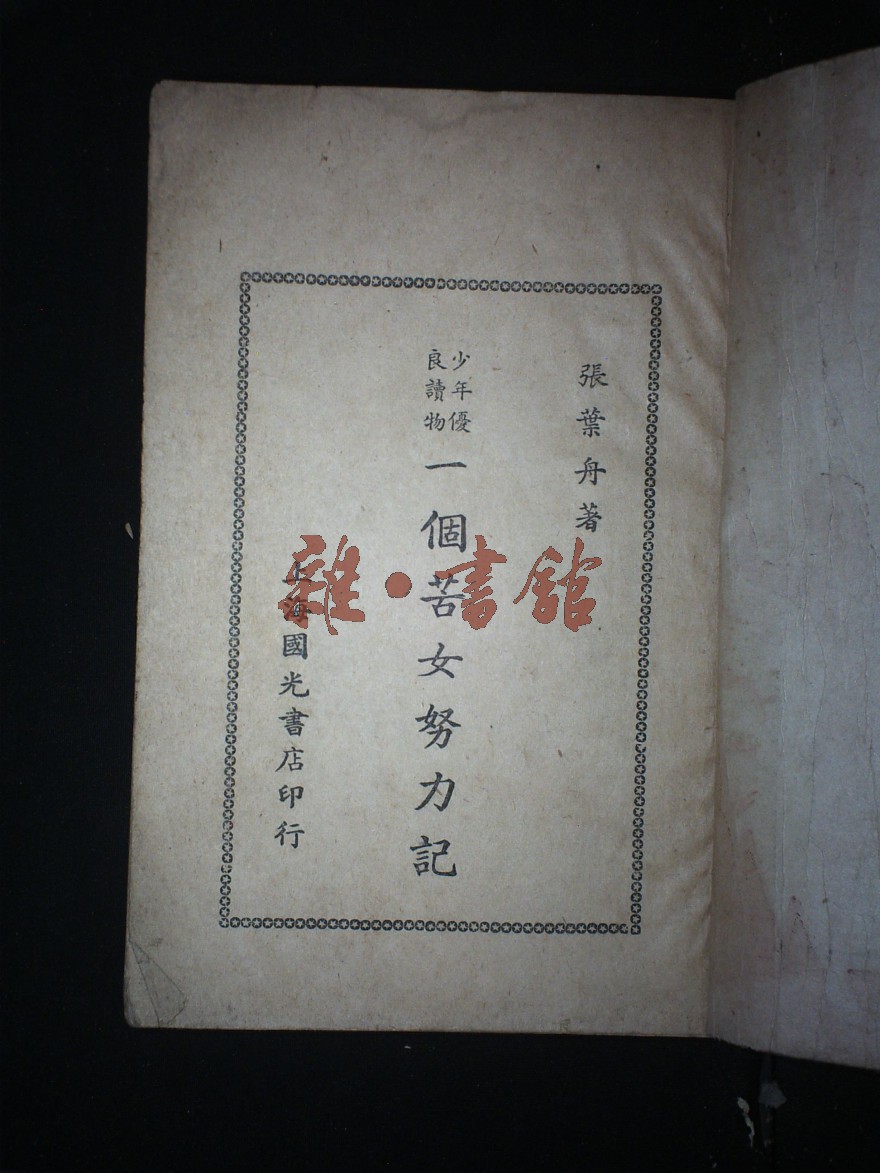 張葉舟著
少年優
良讀物
一個苦女努力記
上海國光書店印行
雜·書館